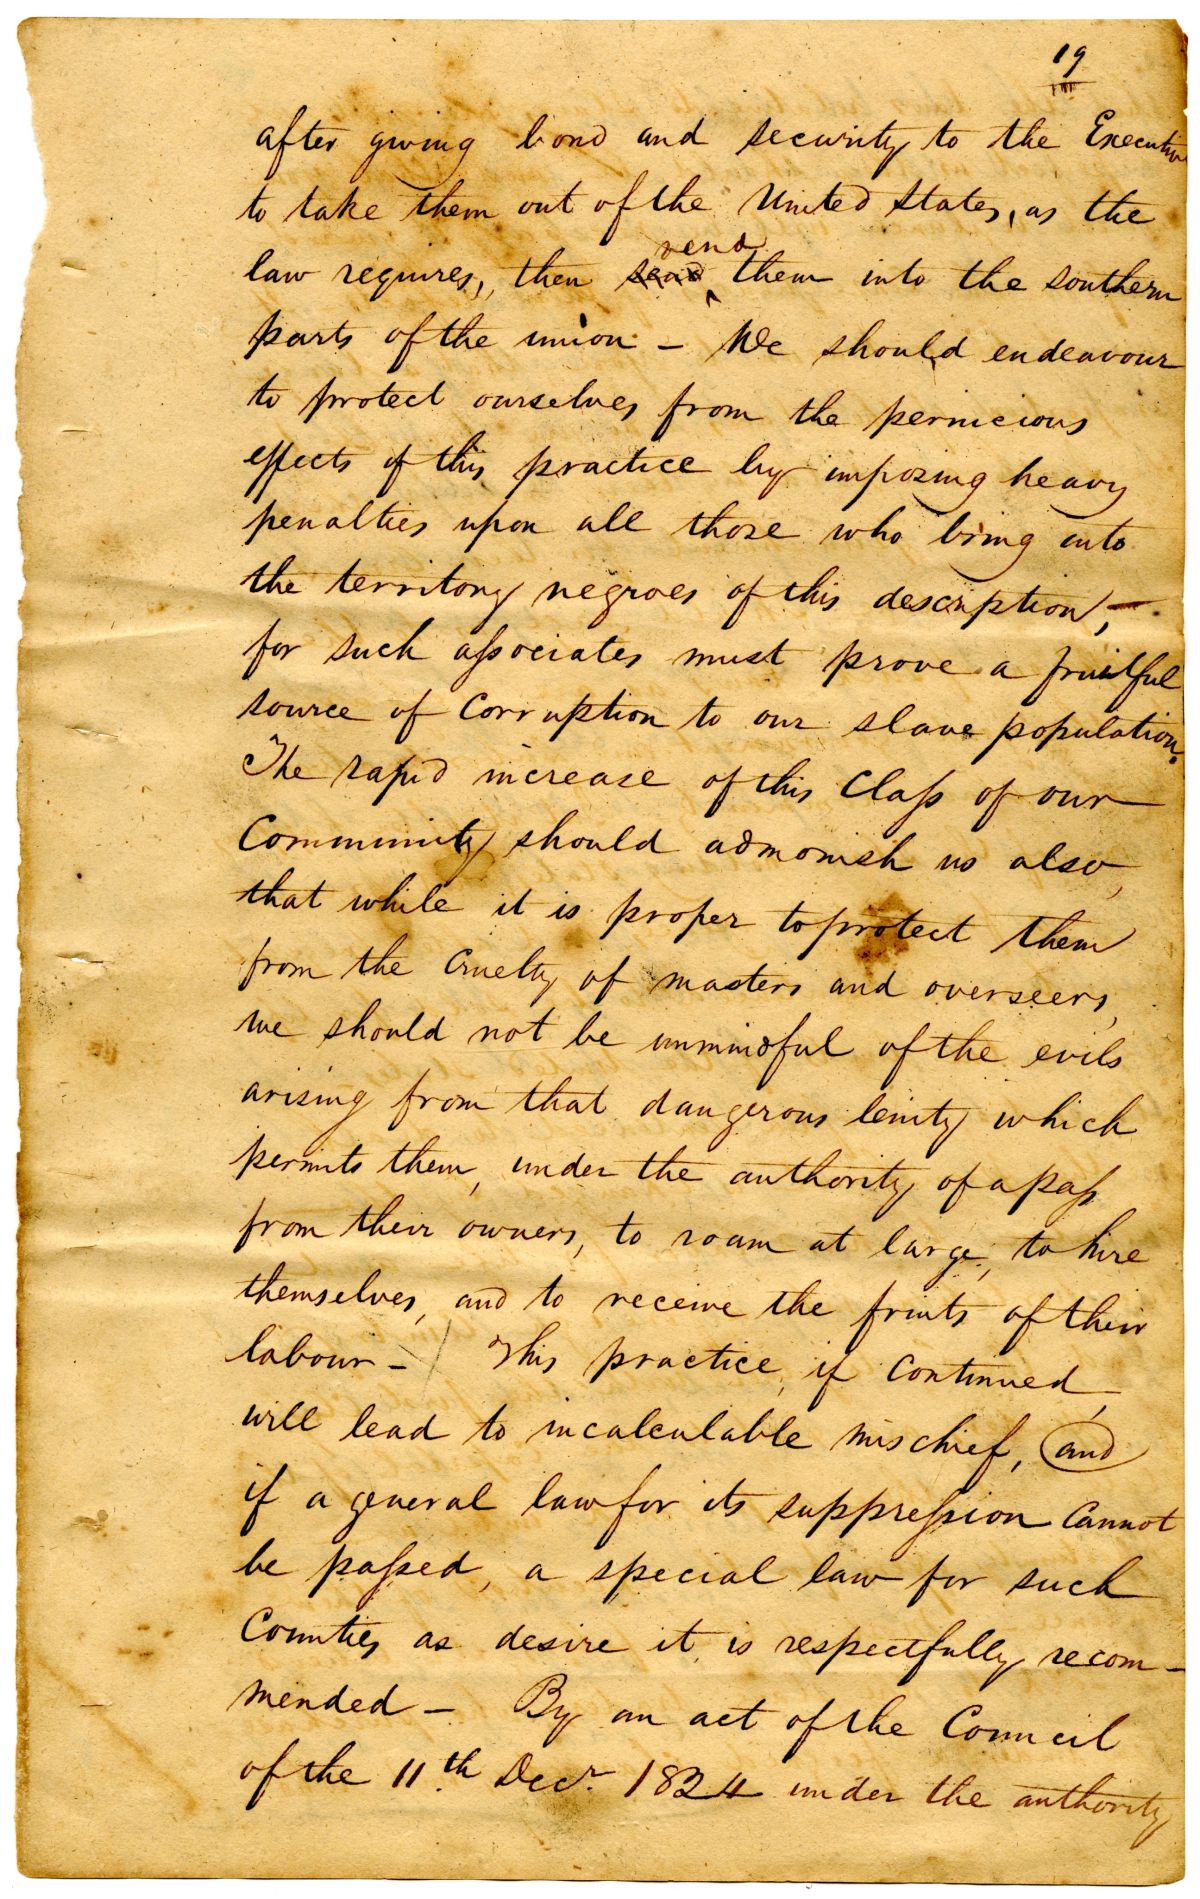 19
after giving bond and security to the Executive
to take them out of the United States, as the
law requires, then send vend them into the southern
parts of the union - We should endeavour
to protect ourselves from the pernicious
effects of this practice by imposing heavy
penalties upon all those who bring into
the territory negroes of this description, -
for such associates must prove a fruitful
source of Corruption to our slave population.
The rapid increase of this Class of our
Community should admonish us also,
that while it is proper to protect them
from the Cruelty of masters and overseers,
we should not be unmindful of the evils
arising from that dangerous lenity which
permits them, under the authority of a pass
from their owners, to roam at large, to hire
themselves, and to receive the fruits of their
labour - / This practice, if Continued,
will lead to incalculable mischief, and
if a general law for its suppression Cannot
be passed, a special law for such
Counties as desire it, is respectfully recom-
mended - By an act of the Council
of the 11th Decr. 1824 under the authority